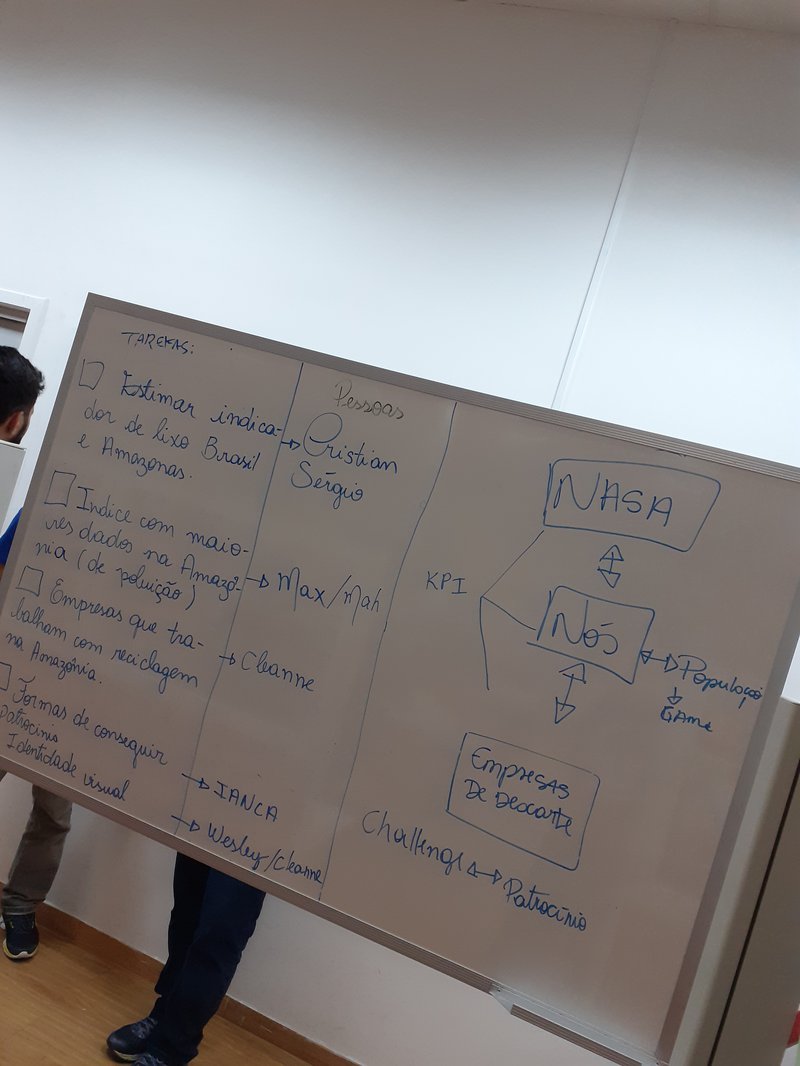 TAREFAS:
Estimar indica-
dor de lixo Brasil
e Amazonas.
Indice com maio-
res dados na Amazô-
nia (de poluição)
Empresas que tra-
balham com reciclagem
na Amazônia.
Formas de conseguir
Patrocínio
Identidade visual
Pessoas
Cristian
Sérgio
Max/Mah
Cleanne
IANCA
Wesley/Cleanne
NASA
KPI
Nós
População
GAME
EMPRESAS
DE DESCARTE
Challenge
Patrocínio